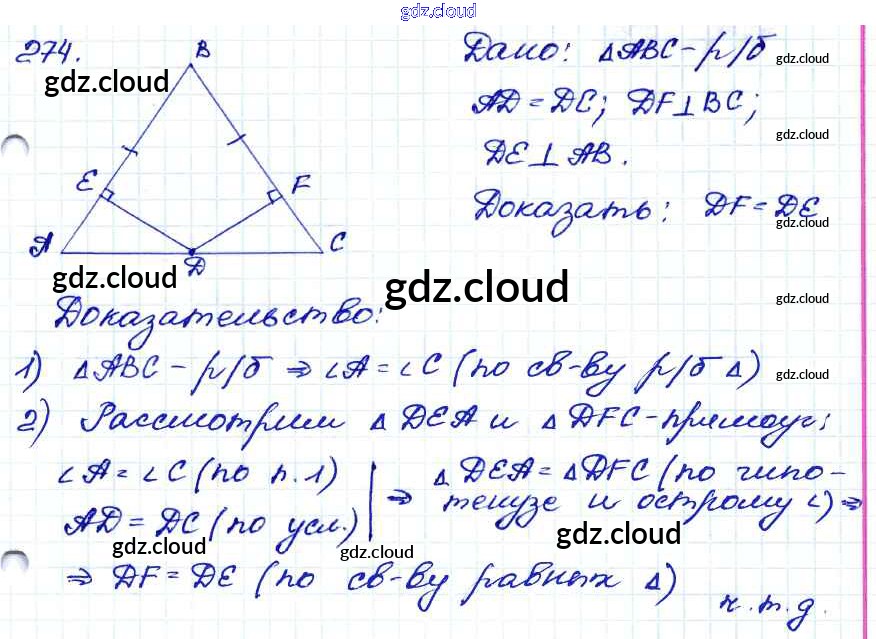 gdz.cloud
274.
gdz.cloud
B
E
F
A
D
C
gdz.cloud
Дано: △ABC – р/б
gdz.cloud
AD = DC; DF⊥BC;
gdz.cloud
DE⊥AB.
Доказать: DF = DE
gdz.cloud
gdz.cloud
gdz.cloud
Доказательство:
1) △ABC – р/б ⇒ ∠A = ∠C (по св-ву р/б △)
gdz.cloud
2) Рассмотрим △DEA и △DFC – прямоуг;
∠A = ∠C (по п.1)
AD = DC (по усл.)
⇒ △DEA = △DFC (по гипо-
тенузе и острому ∠) ⇒
gdz.cloud
gdz.cloud
gdz.cloud
⇒ DF = DE (по св-ву равных △)
ч.т.д.